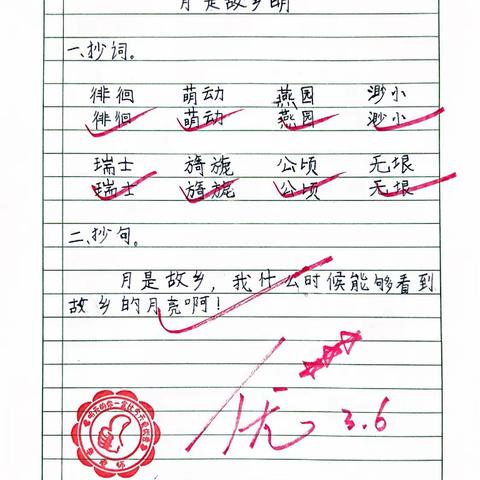 月是故乡明
一、抄词。
徘徊 萌动 燕园 渺小
徘徊 萌动 燕园 渺小
瑞士 旖旎 公顷 无垠
瑞士 旖旎 公顷 无垠
二、抄句。
月是故乡，我什么时候能够看到
故乡的月亮啊！
优
3.6